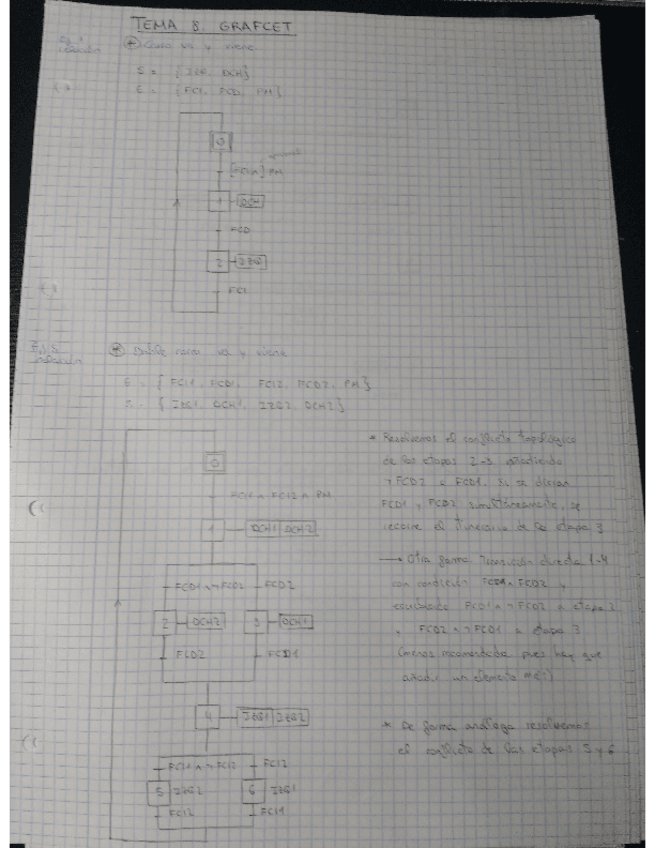 TEMA 8. GRAFCET
Carro va y viene
S = { IZQ, DCH}
E = {FCI, FCD, PM}
0
[FCI ∧] PM
1 DCH
FCD
2 IZQ
FCI
Doble carro va y viene
E = { FCI1, FCD1, FCI2, FCD2, PM}
S = { IZQ1, DCH1, IZQ2, DCH2}
0
FCI1 ∧ FCI2 ∧ PM
1 DCH1 DCH2
FCD1 ∧ ¬ FCD2 FCD2
2 DCH2 3 DCH1
FCD2 FCD1
4 IZQ1 IZQ2
FCI1 ∧ ¬ FCI2 FCI2
5 IZQ2 6 IZQ1
FCI2 FCI1
* Resolvemos el conflicto topológico
de las etapas 2-3 añadiendo
¬ FCD2 a FCD1. Si se dieran
FCD1 y FCD2 simultáneamente, se
recorre el itinerario de la etapa 3
→ Otra forma Transición directa 1-4
con condición FCD1 ∧ FCD2 y
FCD1 ∧ ¬ FCD2 a etapa 2
y FCD2 ∧ ¬ FCD1 a etapa 3
(menos recomendada pues hay que
añadir un elemento más)
* De forma análoga resolvemos
el conflicto de las etapas 5 y 6